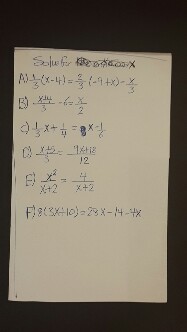 Solve for x
A) 1/3 (x-4) = 2/3 (-9+x) - x/3
B) x+4/3 - 6 = x/2
C) 1/3 x + 1/4 = x - 1/6
D) x+5/3 = 9x+12/12
E) x²/x+2 = 4/x+2
F) 8(3x+10) = 28x - 14 - 4x